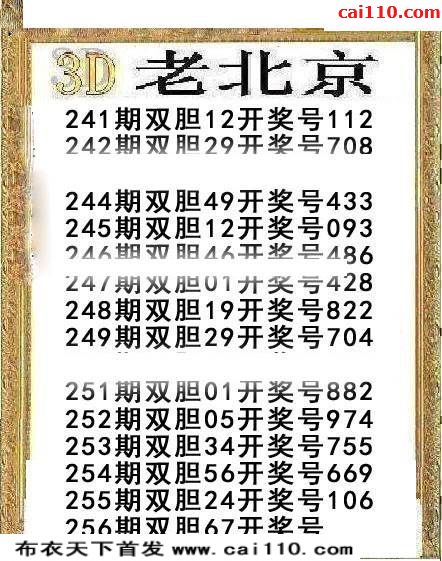 cai110.com
3D 老北京
241期双胆12开奖号112
242期双胆29开奖号708
244期双胆49开奖号433
245期双胆12开奖号093
246期双胆46开奖号486
247期双胆01开奖号428
248期双胆19开奖号822
249期双胆29开奖号704
251期双胆01开奖号882
252期双胆05开奖号974
253期双胆34开奖号755
254期双胆56开奖号669
255期双胆24开奖号106
256期双胆67开奖号
布衣天下首发 www.cai110.com